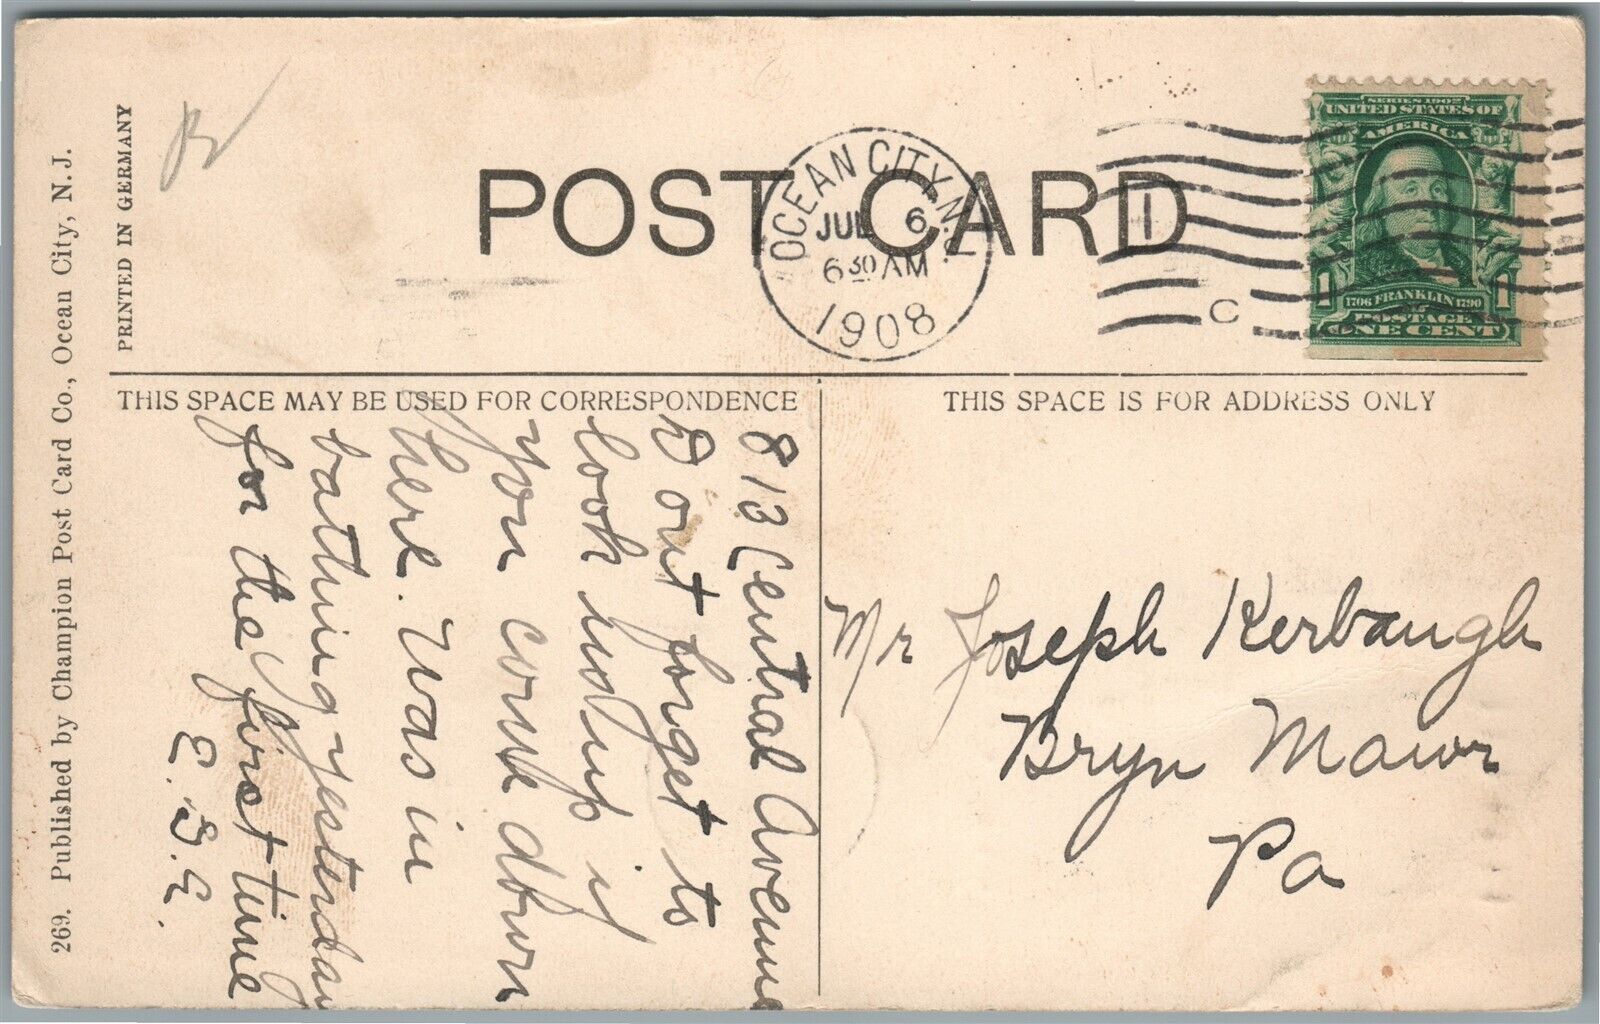 POST CARD
OCEAN CITY, N.J.
JUL 6
6 30 AM
1908
1
C
SERIES 1902
UNITED STATES OF
AMERICA
1706 FRANKLIN 1790
1 1
POSTAGE
ONE CENT
PRINTED IN GERMANY
269. Published by Champion Post Card Co., Ocean City, N. J.
THIS SPACE MAY BE USED FOR CORRESPONDENCE
THIS SPACE IS FOR ADDRESS ONLY
813 Central Avenue
Dont forget to
look us up if
you come down
here. Was in
bathing yesterday
for the first time
Mr Joseph Kerbaugh
Bryn Mawr
Pa